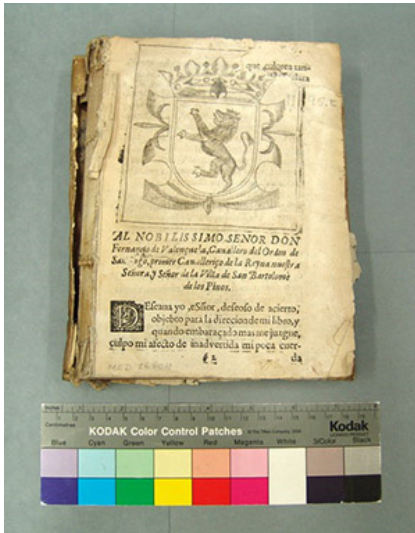 que
AL NOBILISSIMO SEÑOR DON
Fernando de Valençuela, Cauallero del Orden de
Santiago, primer Cauallerizo de la Reyna nuestra
Señora, y Señor de la Villa de San Bartolomè
de los Pinos.
DEseaua yo, Señor, deseoso de acierto,
objebto para la direcion de mi libro, y
quando embaraçado mas me juzgue,
culpo mi afecto de inadvertida mi poca cuer-
da
Inches
Centimetres
KODAK Color Control Patches
Kodak
Blue Cyan Green Yellow Red Magenta White 3/Color Black